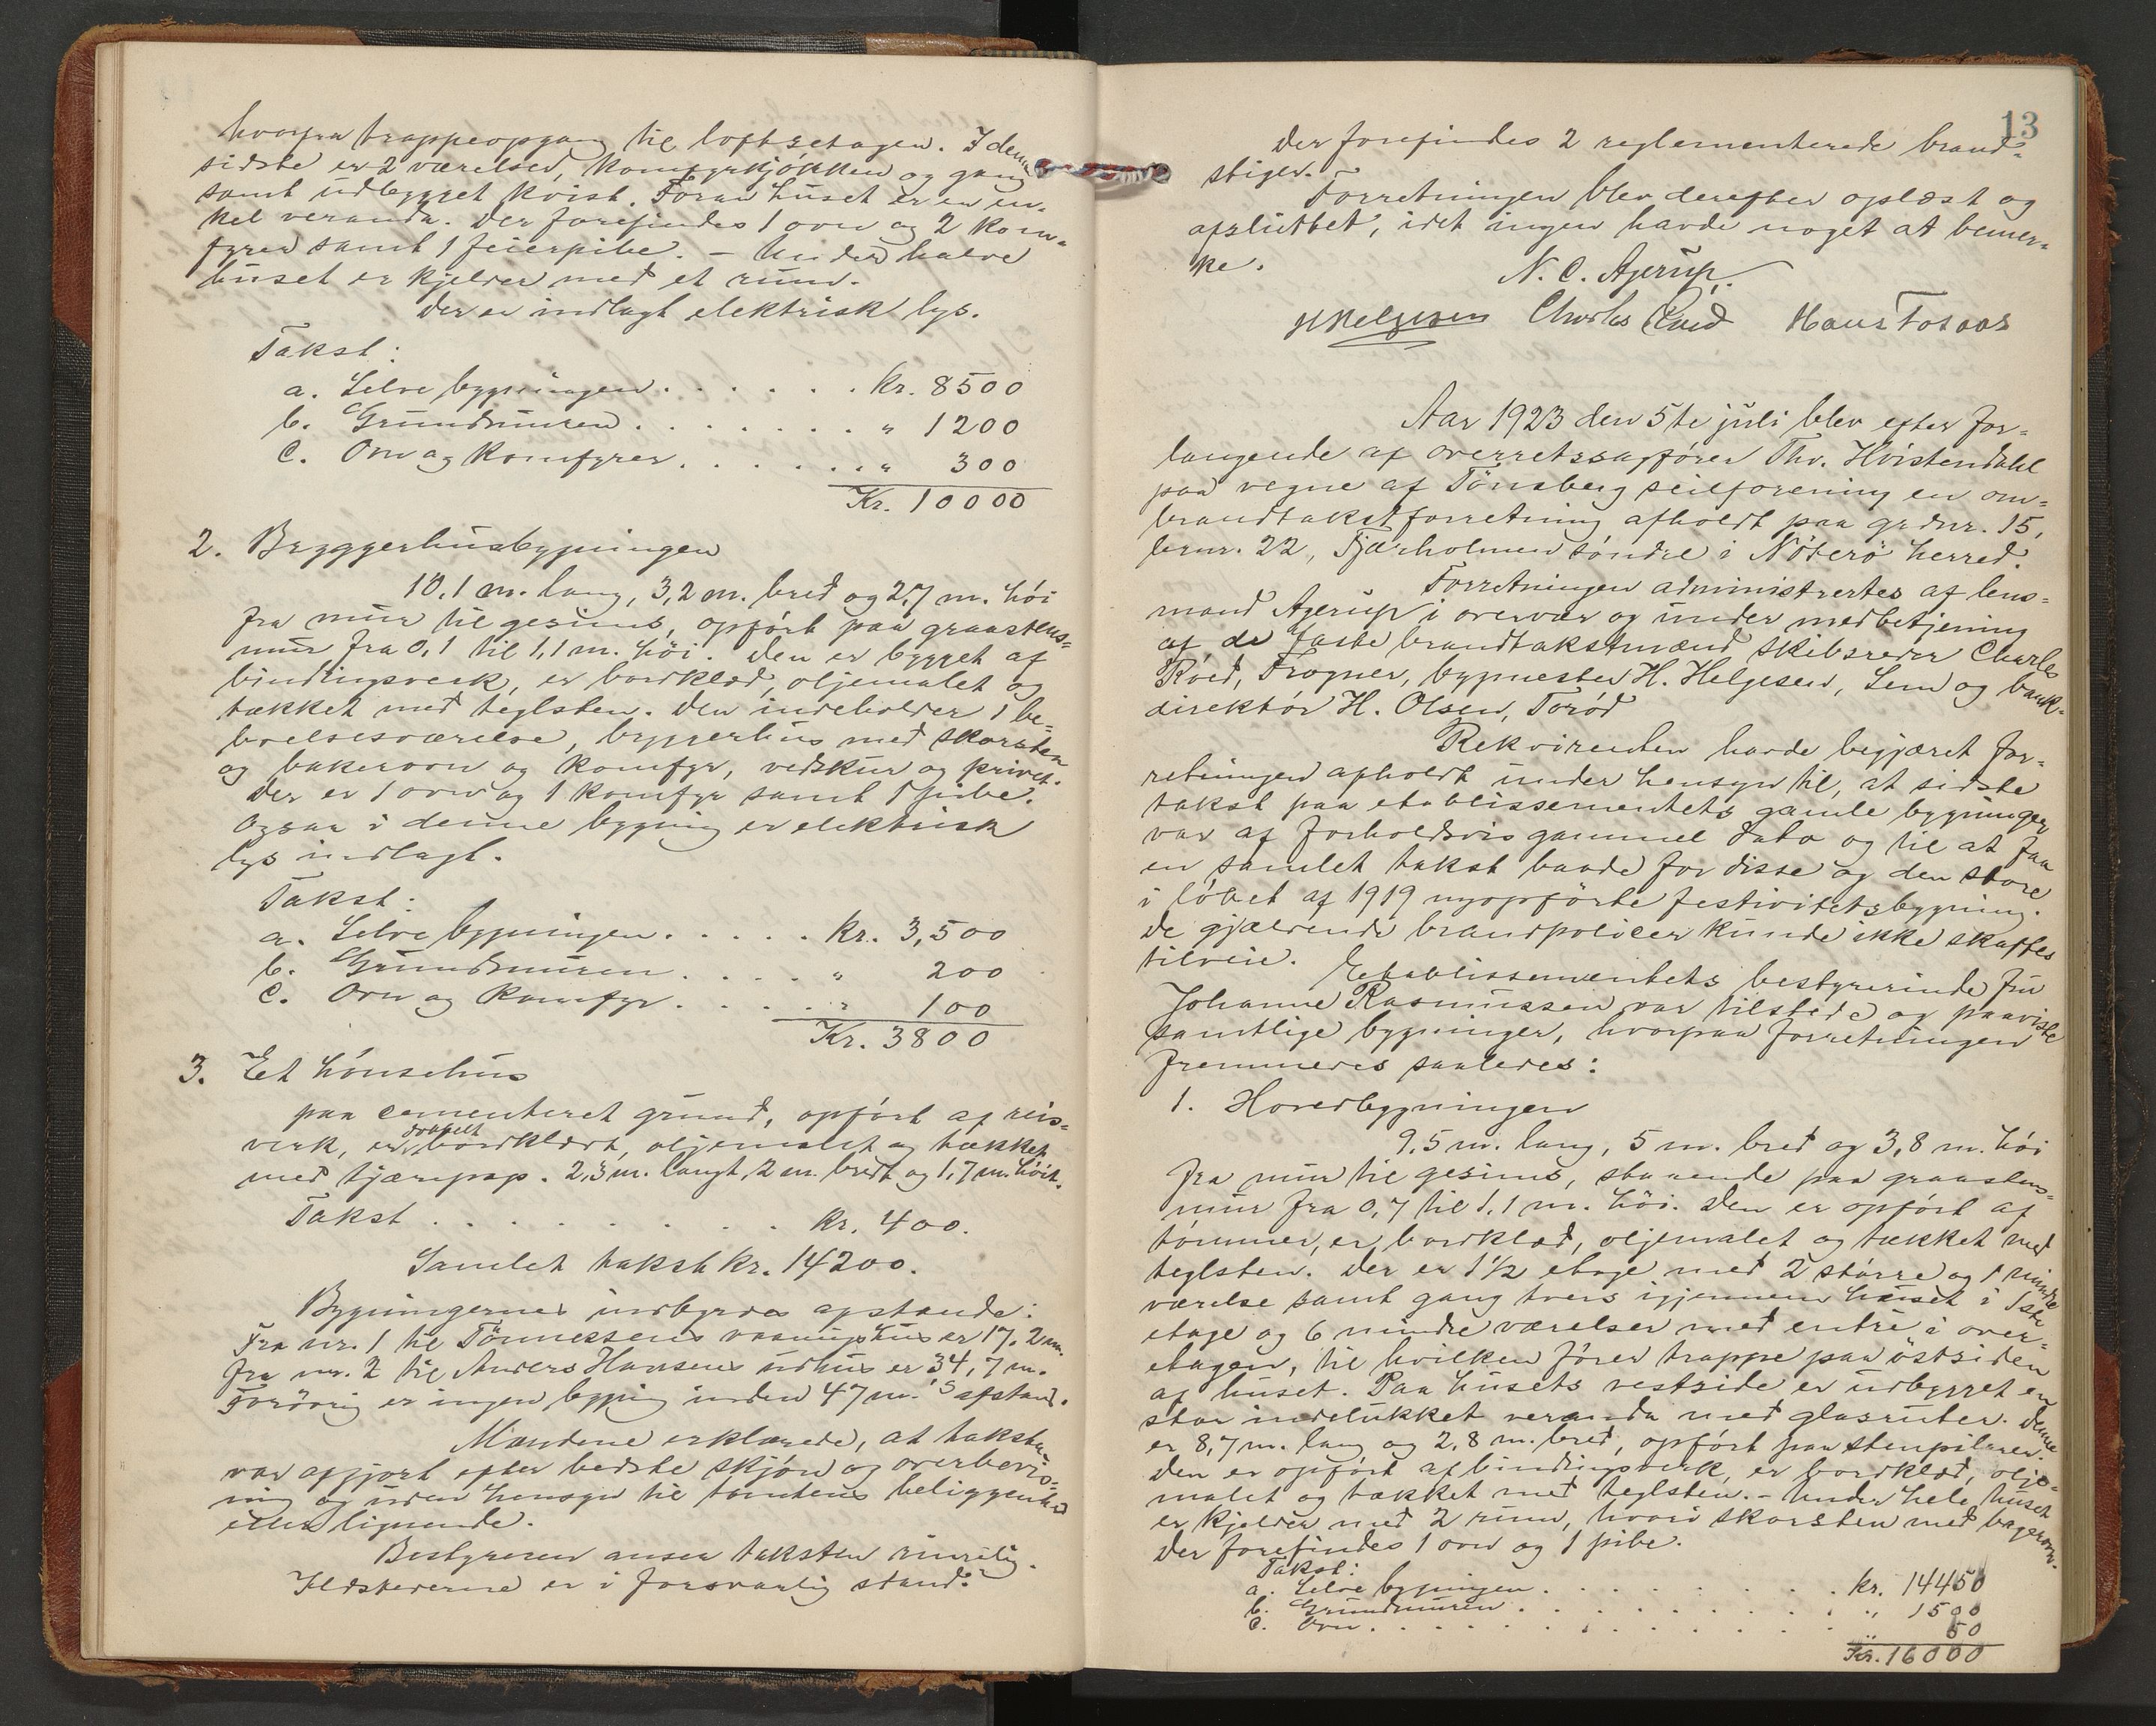 hvorfra trappeopgang til loftsetagen. I denne
sidste er 2 værelser, komfyrkjøkken og gang
samt udbygget kvist. Foran huset er en en-
kel veranda. Der forefindes 1 ovn og 2 kom-
fyrer samt 1 feierpibe. – Under halve
huset er kjelder med et rum.
Der er indlagt elektrisk lys.
Takst:
a. Selve bygningen . . . . . . kr. 8500
b. Grundmuren . . . . . . . . " 1200
c. Ovn og komfyrer . . . . . . . " 300
Kr. 10000
2. Bryggerhusbygningen
10,1 m. lang, 3,2 m. bred og 2,7 m. høi
fra mur til gesims, opført paa graastens-
mur fra 0,1 til 1,1 m. høi. Den er bygget af
bindingsverk, er bordklæd, oljemalet og
tækket med teglsten. Den indeholder 1 be-
boelsesværelse, bryggerhus med skorsten
og bakerovn og komfyr, vedskur og privet.
Der er 1 ovn og 1 komfyr samt 1 pibe.
Ogsaa i denne bygning er elektrisk
lys indlagt.
Takst:
a. Selve bygningen . . . . . kr. 3,500
b. Grundmuren . . . . " 200
c. Ovn og komfyr . . . . . " 100
Kr. 3800
3. Et hønsehus
paa cementeret grund, opført af reis-
dobbelt
verk, er bordklædt, oljemalet og tækket
med tjærepap. 2,3 m. langt, 2 m. bredt og 1,7 m. høit.
Takst . . . . . . . . . kr. 400.
Samlet takst kr. 14200.
Bygningernes indbyrdes afstande:
Fra nr. 1 til Tönnessens vaaningshus er 17,2 m.
Fra nr. 2 til Anders Hansens udhus er 34,7 m.
Forøvrig er ingen bygning inden 47 m.'s afstand.
Mændene erklærede, at taksten
var afgjort efter bedste skjøn og overbevis-
ning og uden hensyn til tomtens beliggenhed
eller lignende.
Bestyreren ansea taksten rimelig.
Ildstederne er i forsvarlig stand.
13
Der forefindes 2 reglementerede brand-
stiger.
Forretningen blev derefter oplæst og
afsluttet, idet ingen havde noget at bemer-
ke.
N. C. Agerup.
H Helgesen Charles Røed Hans Fosaas
Aar 1923 den 5te juli blev efter for-
langende af overretssagfører Thv. Hvistendahl
paa vegne af Tönsberg seilforening en om-
brandtakstforretning afholdt paa grdnr. 15,
brnr. 22, Fjærholmen søndre i Nöterö herred.
Forretningen administrertes af lens-
mand Agerup i overvær og under medbetjening
af de faste brandtakstmænd skibsreder Charles
Røed, Frogner, bygmester H. Helgesen, Sem og bank-
direktør H. Olsen, Torød
Rekvirenten havde begjæret for-
retningen afholdt under hensyn til, at sidste
takst paa etablissementets gamle bygninger
var af forholdsvis gammel dato og til at faa
en samlet takst baade for disse og den store
i løbet af 1919 nyopførte festivitetsbygning.
De gjældende brandpolicer kunde ikke skaffes
tilveie.
Etablissementets bestyrerinde fru
Johanne Rasmussen var tilstede og paaviste
samtlige bygninger, hvorpaa forretningen
fremmedes saaledes:
1. Hovedbygningen
9,5 m. lang, 5 m. bred og 3,8 m. høi
fra mur til gesims, staaende paa graastens-
mur fra 0,7 til 1,1 m. høi. Den er opført af
tømmer, er bordklæd, oljemalet og tækket med
teglsten. Der er 1½ etage med 2 større og 1 mindre
værelse samt gang tvers igjennem huset i 1ste
etage og 6 mindre værelser med entré i over-
etagen, til hvilken fører trappe paa østsiden
af huset. Paa husets vestside er udbygget en
stor indelukket veranda med glasruter. Denne
er 8,7 m. lang og 2,8 m. bred, opført paa stenpilarer.
Den er opført af bindingsverk, er bordklæd, olje-
malet og tækket med teglsten. – Under hele huset
er kjelder med 2 rum, hvori skorsten med bagerovn.
Der forefindes 1 ovn og 1 pibe.
Takst:
a. Selve bygningen . . . . . . . . kr. 14450
b. Grundmuren . . . . . . . . . " 1500
c. Ovn . . . . . . . . . . 50
Kr. 16000